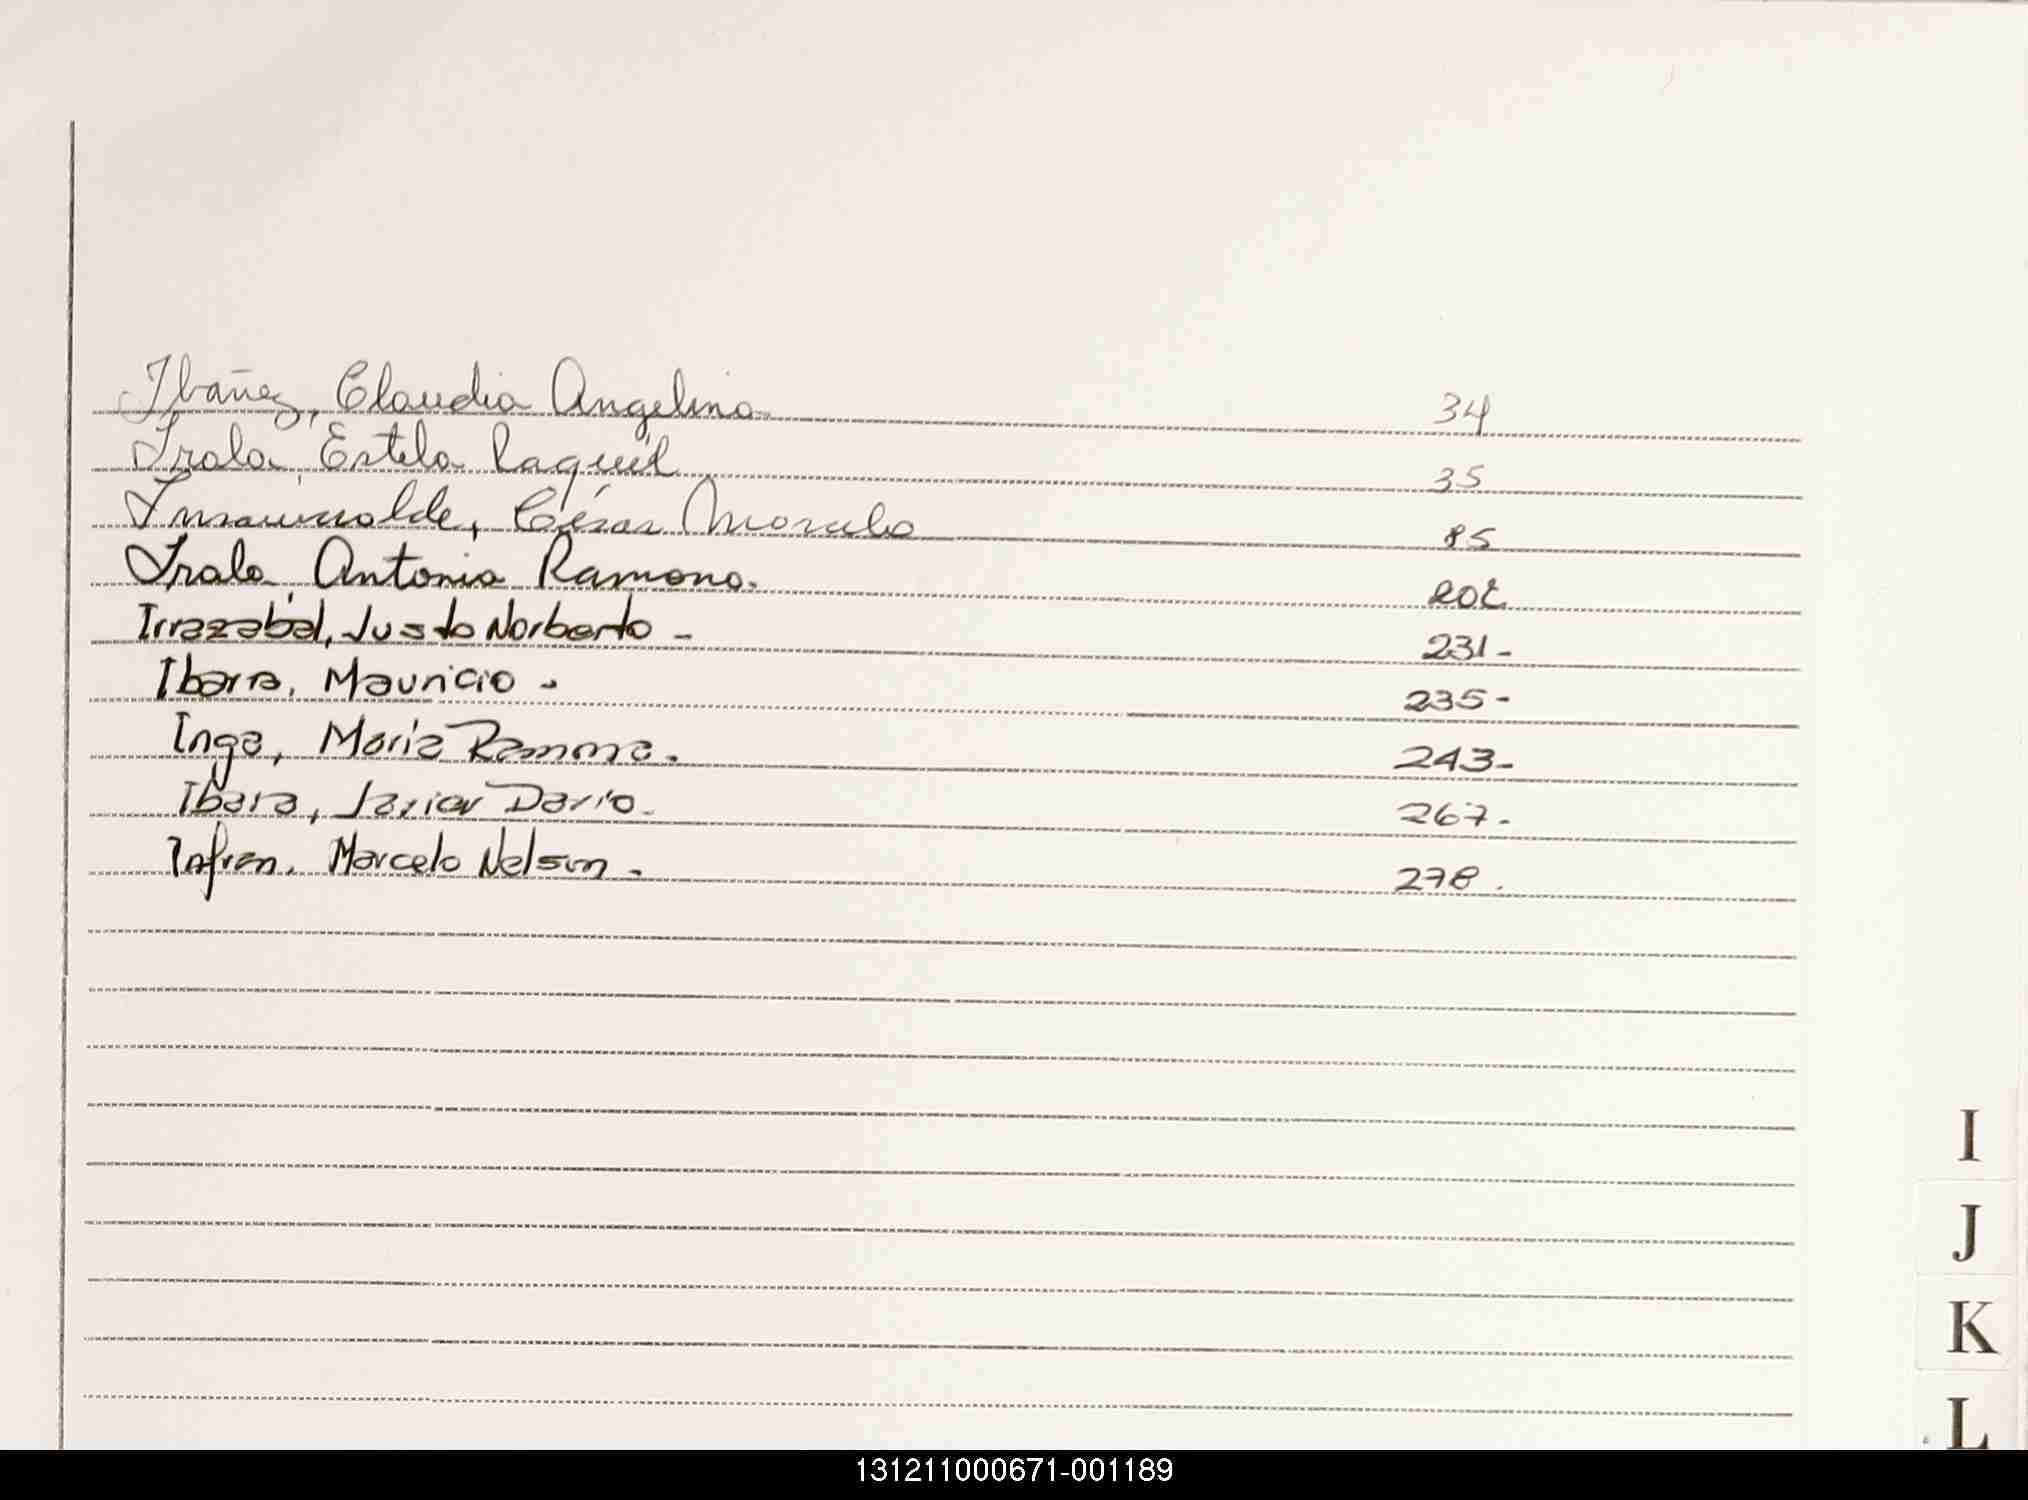 Ibáñez, Claudia Angelina 34
Irala, Estela Raquel 35
Insaurralde, César Morales 85
Irala, Antonia Ramona. 202
Irrazabal, Justo Norberto - 231-
Ibarra, Mauricio - 235-
Inga, Maria Ramona. 243-
Ibara, Javier Dario. 267-
Infran, Marcelo Nelson - 278.
I
J
K
L
131211000671-001189